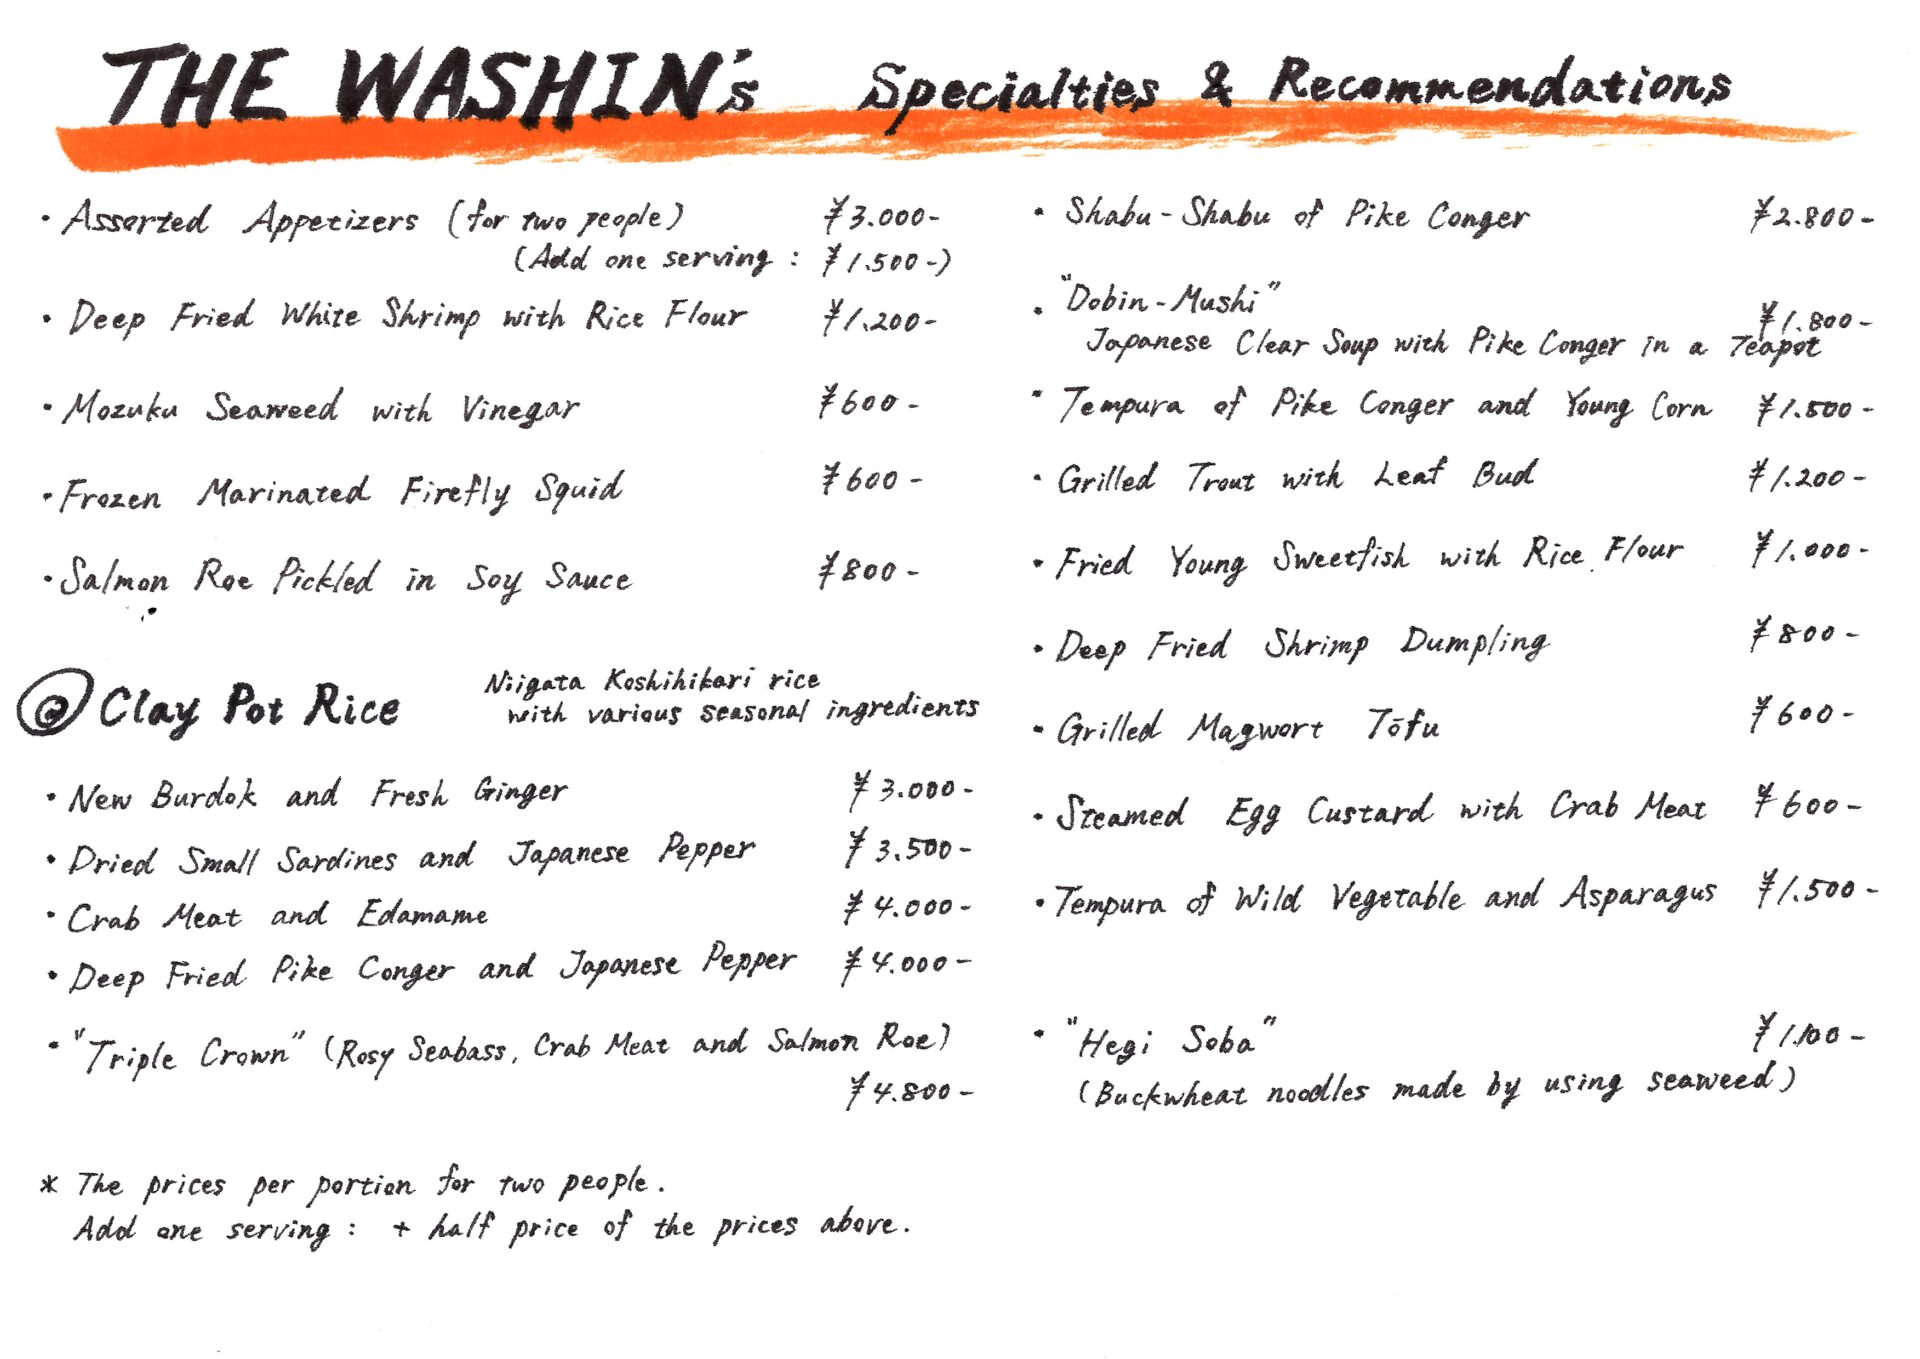 THE WASHIN's Specialties & Recommendations
・Assorted Appetizers (for two people) ¥3.000-
(Add one serving : ¥1.500-)
・Deep Fried White Shrimp with Rice Flour ¥1.200-
・Mozuku Seaweed with Vinegar ¥600-
・Frozen Marinated Firefly Squid ¥600-
・Salmon Roe Pickled in Soy Sauce ¥800-
◎Clay Pot Rice
Niigata Koshihikari rice
with various seasonal ingredients
・New Burdok and Fresh Ginger ¥3.000-
・Dried Small Sardines and Japanese Pepper ¥3.500-
・Crab Meat and Edamame ¥4.000-
・Deep Fried Pike Conger and Japanese Pepper ¥4.000-
・"Triple Crown" (Rosy Seabass, Crab Meat and Salmon Roe)
¥4.800-
* The prices per portion for two people.
Add one serving : + half price of the prices above.
・Shabu-Shabu of Pike Conger ¥2.800-
・"Dobin-Mushi" ¥1.800-
Japanese Clear Soup with Pike Conger in a Teapot
・Tempura of Pike Conger and Young Corn ¥1.500-
・Grilled Trout with Leaf Bud ¥1.200-
・Fried Young Sweetfish with Rice Flour ¥1.000-
・Deep Fried Shrimp Dumpling ¥800-
・Grilled Magwort Tōfu ¥600-
・Steamed Egg Custard with Crab Meat ¥600-
・Tempura of Wild Vegetable and Asparagus ¥1.500-
・"Hegi Soba" ¥1.100-
(Buckwheat noodles made by using seaweed)